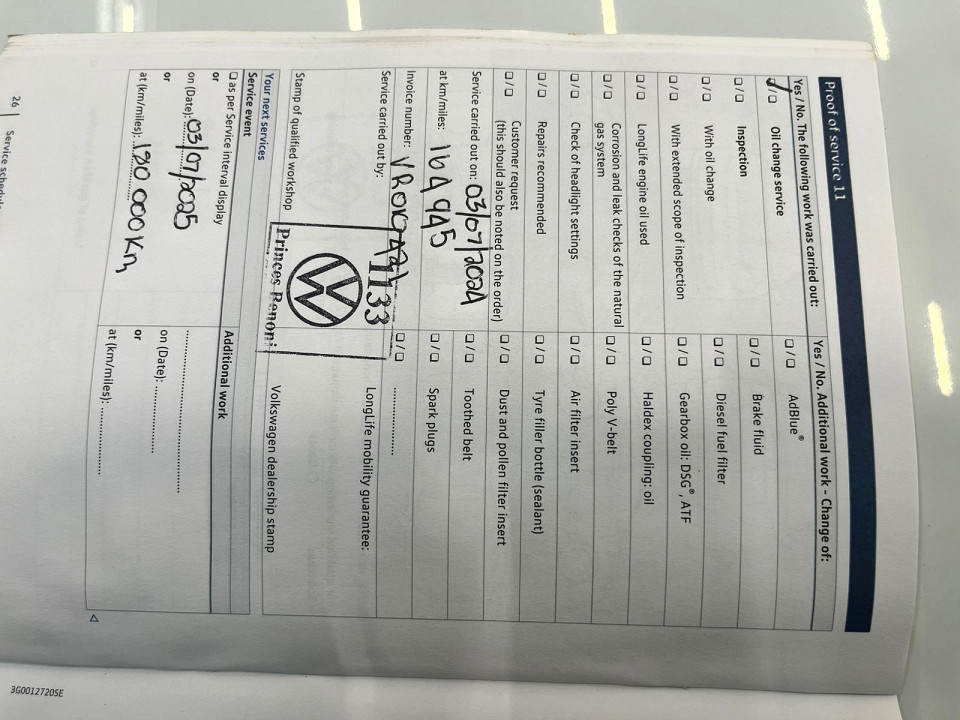 Proof of service 11
Yes / No. The following work was carried out:
☑/☐ Oil change service
☐/☐ Inspection
☐/☐ With oil change
☐/☐ With extended scope of inspection
☐/☐ LongLife engine oil used
☐/☐ Corrosion and leak checks of the natural
gas system
☐/☐ Check of headlight settings
☐/☐ Repairs recommended
☐/☐ Customer request
(this should also be noted on the order)
Service carried out on: 03/07/2024
at km/miles: 164945
Invoice number:
Service carried out by:
1133
Stamp of qualified workshop
Princes Benoni
Yes / No. Additional work - Change of:
☐/☐ AdBlue®
☐/☐ Brake fluid
☐/☐ Diesel fuel filter
☐/☐ Gearbox oil: DSG®, ATF
☐/☐ Haldex coupling: oil
☐/☐ Poly V-belt
☐/☐ Air filter insert
☐/☐ Tyre filler bottle (sealant)
☐/☐ Dust and pollen filter insert
☐/☐ Toothed belt
☐/☐ Spark plugs
☐/☐ ................
LongLife mobility guarantee:
Volkswagen dealership stamp
Your next services
Service event
☐ as per Service interval display
or
on (Date): 03/07/2025
or
at (km/miles): 180 000 Km
Additional work
................................
on (Date): ................
or
at (km/miles): ................
26 | Service schedule
3G0012720SE